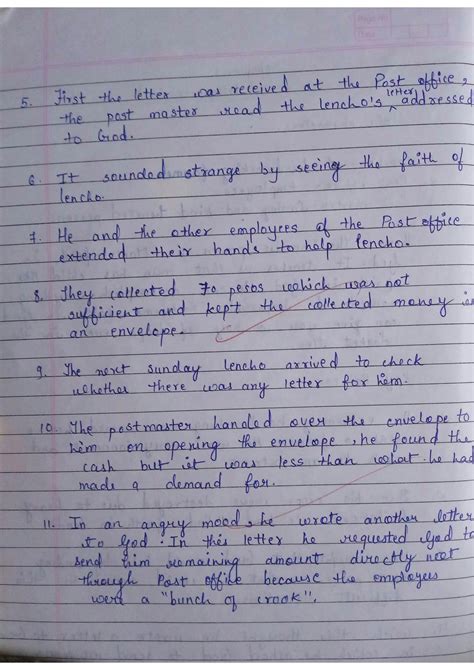 Page No.
Date
5. First the letter was received at the Post office,
the post master read the lencho's letter addressed
to God.
6. It sounded strange by seeing the faith of
lencho.
7. He and the other employees of the Post office
extended their hands to help lencho.
8. They collected 70 pesos which was not
sufficient and kept the collected money in
an envelope.
9. The next sunday lencho arrived to check
whether there was any letter for him.
10. The postmaster handed over the envelope to
him on opening the envelope, he found the
cash but it was less than what he had
made a demand for.
11. In an angry mood, he wrote another letter
to God. In this letter he requested God to
send him remaining amount directly not
through Post office because the employees
were a "bunch of crook".